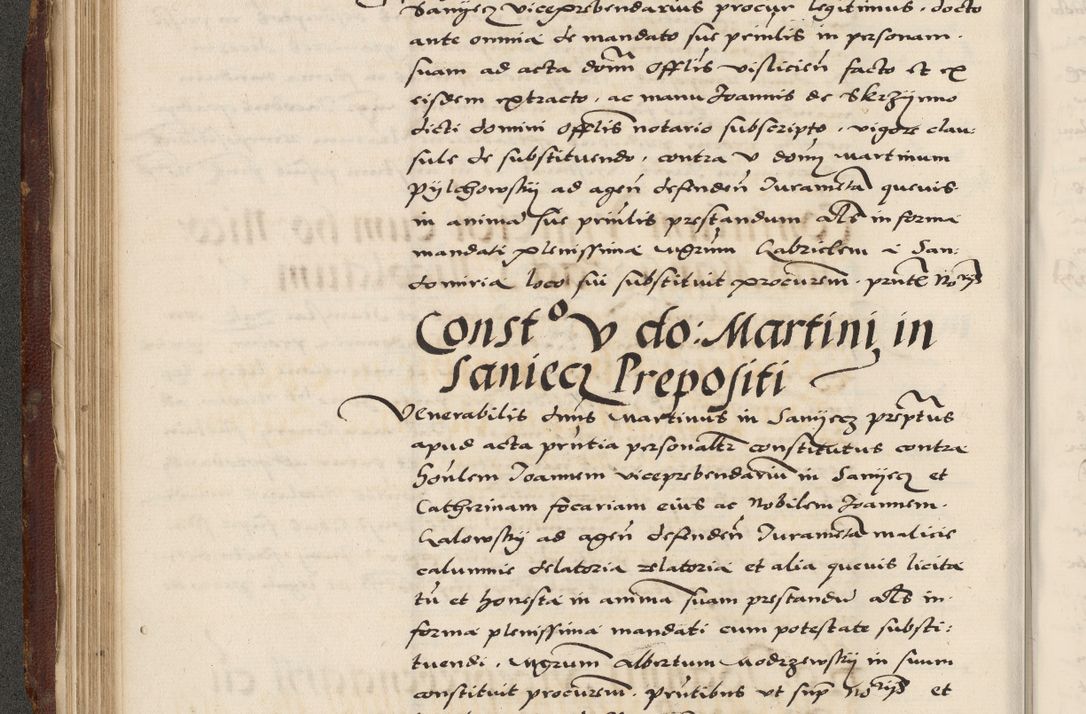 Sanijecz viceprebendarius procur legitimus . docto
ante omnia de mandato sue prinlis in personam .
suam ad acta domi Offlis visliciens facto et ex
eisdem extracto . ac manu Joannis de Skrzijnno
dicti domini Offlis notario subscripto . vigore clau-
sule de substituendo . contra v domi Martinum
Pijlchowskij ad agen defenden Iuramenta quevis
in anima sue prinlis prestandum als in forma
mandati plenissima Mgrum Gabrielem a San-
domiria loco sui substituit procurem . prnte Norijs
Constᵒ v do: Martini in
Saniecz Prepositi
Venerabilis dnus Martinus in Sanijecz preptus
apud acta prntia personalr constitutus contra
honlem Joannem viceprebendarium in Sanijecz et
Catherinam focariam eius ac Nobilem Joannem .
Galowskij ad agen defenden Iuramenta malicie
calumnie delatoria relatoria et alia quevis licita
tu et honesta in animam suam prestandu als in
forma plenissima mandati cum potestate substi:
tuendi . Mgrum Albertum Modrzewskij in suum
constituit procurem . prntibus ut sup norijs et